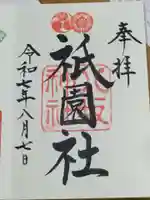 奉拝
祇園社
令和七年八月七日